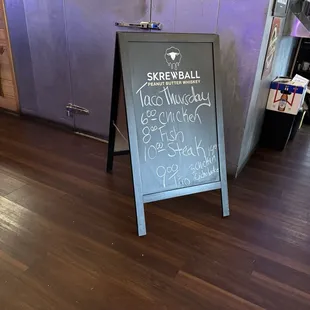 SKREWBALL
PEANUT BUTTER WHISKEY
Taco Thursday
6.00 chicken
8.00 Fish
10.00 Steak
9.00